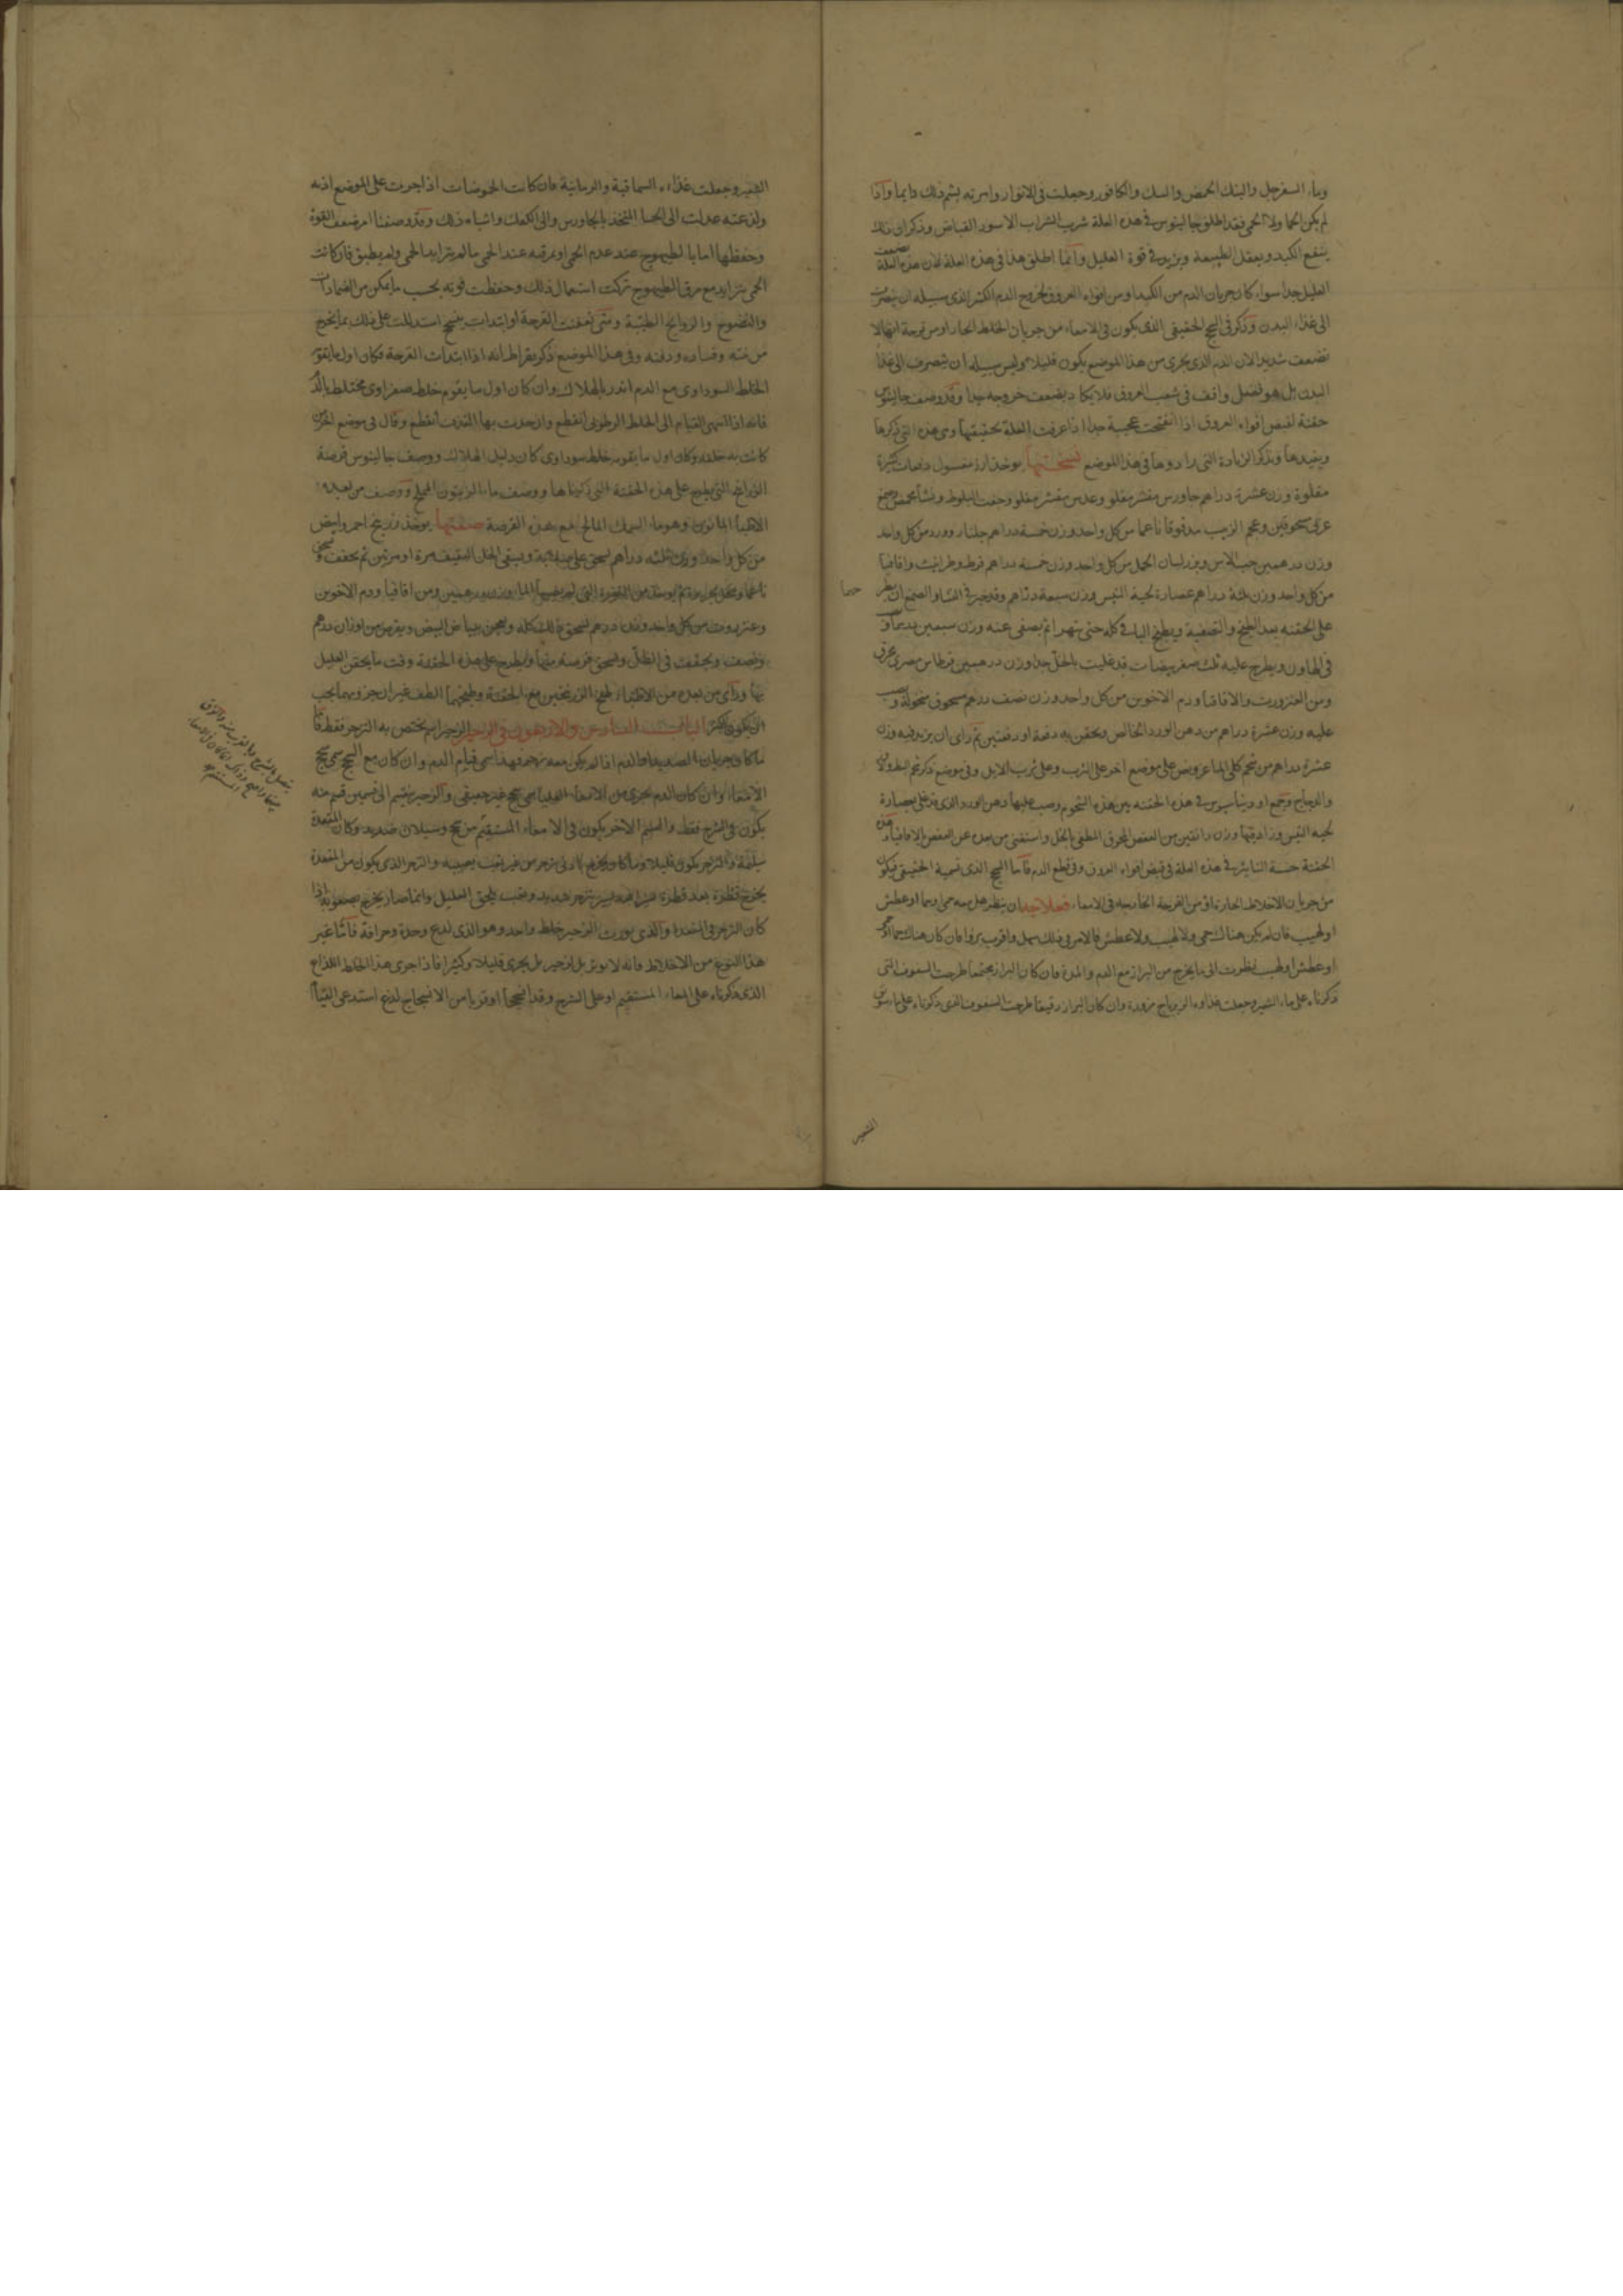 وماء السفرجل والبنك الحمض والسك والكافور وجعلت في الانوار وامرته بشم ذلك دايما واذا
لم يكن الحما ولا الحمى فقد اطلق جالينوس في هذه العلة شرب الشراب الاسود القباض وذكر ان ذلك
ينفع الكبد ويعقل الطبيعة ويزيد في قوة العليل وانما اطلق هذا في هذه العلة لان هذه العلة تضعف
العليل جدا سواء كان جريان الدم من الكبد او من افواه العروق لخروج الدم الكثير الذي سبيله ان ينصرف
الى غذاء البدن وذكر في السحج الحقيقي الذي يكون في الامعاء من جريان الخلط الحار او من قرحة انها لا
تضعف شديدا لان الدم الذي يجري من هذا الموضع يكون قليلا وليس سبيله ان ينصرف الى غذا
البدن بل هو لفضل واقف في شعب العروق فلا يكاد يضعف خروجه جدا وقد وصف جالينوس
حقنة لقبض افواه العروق اذا انفتحت عجيبة جدا اذا عرفت العلة بحقيقتها وهي هذه التي ذكرها
ونفيدها ونذكر الزيادة التي زادوها في هذا الموضع نسختها يوخذ ارز مغسول دفعات كثيرة
مقلوة وزن عشرة دراهم جاورس مقشر مقلو وعدس مقشر مقلو وجفت البلوط ونشا محمص وصمغ
عربي مسحوقين وعجم الزبيب مدقوقا ناعما من كل واحد وزن خمسة دراهم جلنار وورد من كل واحد
وزن درهمين حب الاس وبزر لسان الحمل من كل واحد وزن خمسة دراهم قرط وطراثيث واقاقيا
من كل واحد وزن ثلثة دراهم عصارة لحية التيس وزن سبعة دراهم وقد خير في النشا والصمغ ان يطر حما
على الحقنة بعد الطبخ والتصفية ويطبخ الباقي كله حتى تهرا ثم يصفى عنه وزن سبعين درهما و
في الهاون ويطرح عليه ثلث صفر بيضات قد غليت بالخل جدا وزن درهمين قرطاس مصري محرق
ومن العنزروت والاقاقيا ودم الاخوين من كل واحد وزن نصف درهم مسحوق منخولة ويصب
عليه وزن عشرة دراهم من دهن الورد الخالص ويحقن به دفعة او دفعتين ثم راى ان يزيد فيه وزن
عشرة دراهم من شحم كلى الماعز ونص على موضع اخر على الثرب وعلى ثرب الايل وفي موضع ذكر شحم البط
والدجاج وجمع اوريباسيوس في هذه الحقنة بين هذه الشحوم وصب عليها دهن الورد الذي قد غلي بعصارة
لحية التيس وزاد فيها وزن دانقين من العفص المحرق المطفي بالخل واستغنى من بعده عن العفص بالاقاقيا وهذه
الحقنة حسنة التاثير في هذه العلة في قبض افواه العروق وفي قطع الدم فاما السحج الذي نسميه الحقيقي فيكون
من جريان الاخلاط الحارة او من القرحة الخارجة في الامعاء فعلاجه ان ينظر هل معه حمى او حما او عطش
او لهيب فان لم يكن هناك حمى ولا لهيب ولا عطش فالامر في ذلك سهل واقرب برؤا فان كان هناك حما او حمى
او عطش او لهيب نظرت الى ما يخرج من البراز مع الدم والمدة فان كان البراز مجتمعا طرحت السفوف التي
ذكرناه على ماء الشعير وجعلت غذاوه الزيرباج مزورة وان كان البراز رقيقا طرحت السفوف الذي ذكرناه على ماء سويق
الشعير
الشعير وجعلت غذاءه السماقية والرمانية فان كانت الحموضات اذا جرت على الموضع اذته
ولذعته عدلت الى الحسا المتخذ بالجاورس والى الكعك واشباه ذلك وقد وصفنا امر ضعف القوة
وحفظها اما بالطيهوج عند عدم الحمى او بمرقه عند الحمى ما لم يتزايد الحمى ولم يطبق فان كانت
الحمى تتزايد مع مرق الطيهوج تركت استعمال ذلك وحفظت قوته بحسب ما يمكن من الضمادات
والنضوح والروايح الطيبة ومتى تعفنت القرحة او ابتدات بتسحج استدللت على ذلك بما يخرج
من نتنه وفساده ودفنه وفي هذا الموضع ذكر بقراط انه اذا ابتدات القرحة فكان اول ما يقوم
الخلط السوداوي مع الدم انذر بالهلاك وان كان اول ما يقوم خلط صفراوي مختلط بالدم
فانه اذا انتهى القيام الى الخلط الرطوبي انقطع وان حدث بها القذف انقطع وقال في موضع اخر من
كانت به خلفة وكان اول ما يقوم خلط سوداوي كان دليل الهلاك ووصف جالينوس قرصة
الزرانيخ التي يطرح على هذه الحقنة التي ذكرناها ووصف ماء الزيتون المملح ووصف من بعده
الاطباء المانون وهو ماء السمك المالح مع هذه القرصة صفتها يوخذ زرنيخ احمر وابيض
من كل واحد وزن ثلثة دراهم يسحق على صلابة ويسقى الخل الثقيف مرة او مرتين ثم يجفف ويسحق
وعنزروت من كل واحد وزن درهم يسحق ذلك كله ويعجن ببياض البيض ويقرص من اوزان درهم
ونصف ويجفف في الظل ويسحق قرصة منها ويطرح على هذه الحقنة وقت ما يحقن العليل
بها وراى من بعده من الاطباء طبخ الزرنيخين مع الحقنة وطبخهما الطف غير ان جزوهما يجب
ان يكون اكثر الباب السادس والاربعون في الزحير الزحير اسم يختص به التزحر فقط فاما
ما كان جريان الصديد والدم اذا لم يكن معه تزحر فهذا سمي قيام الدم وان كان مع السحج سمي سحج
الامعاء وان كان الدم يجري من الامعاء العليا سمي سحج غير حقيقي والزحير ينقسم الى قسمين قسم منه
يكون في الشرج فقط والقسم الاخر يكون في الامعاء المستقيم من سحج وسيلان صديد وكان المقعدة
سليمة والتزحر يكون قليلا وما كان يخرج بادنى تزحر من غير تعب يصيبه والتزحر الذي يكون من المقعدة
يخرج قطرة بعد قطرة بتزحر شديد وتعب يلحق العليل وانما صار يخرج بصعوبة اذا
كان التزحر في المقعدة والذي يورث الزحير خلط واحد وهو الذي لذع وحدة وحرافة فاما غير
هذا النوع من الاخلاط فانه لا يورث الزحير بل يجري قليلا وكثيرا فاذا جرى هذا الخلط اللذاع
الذي ذكرناه على المعاء المستقيم او على الشرج وقد انسحجا او قربا من الانسحاج لذع استدعى القيام